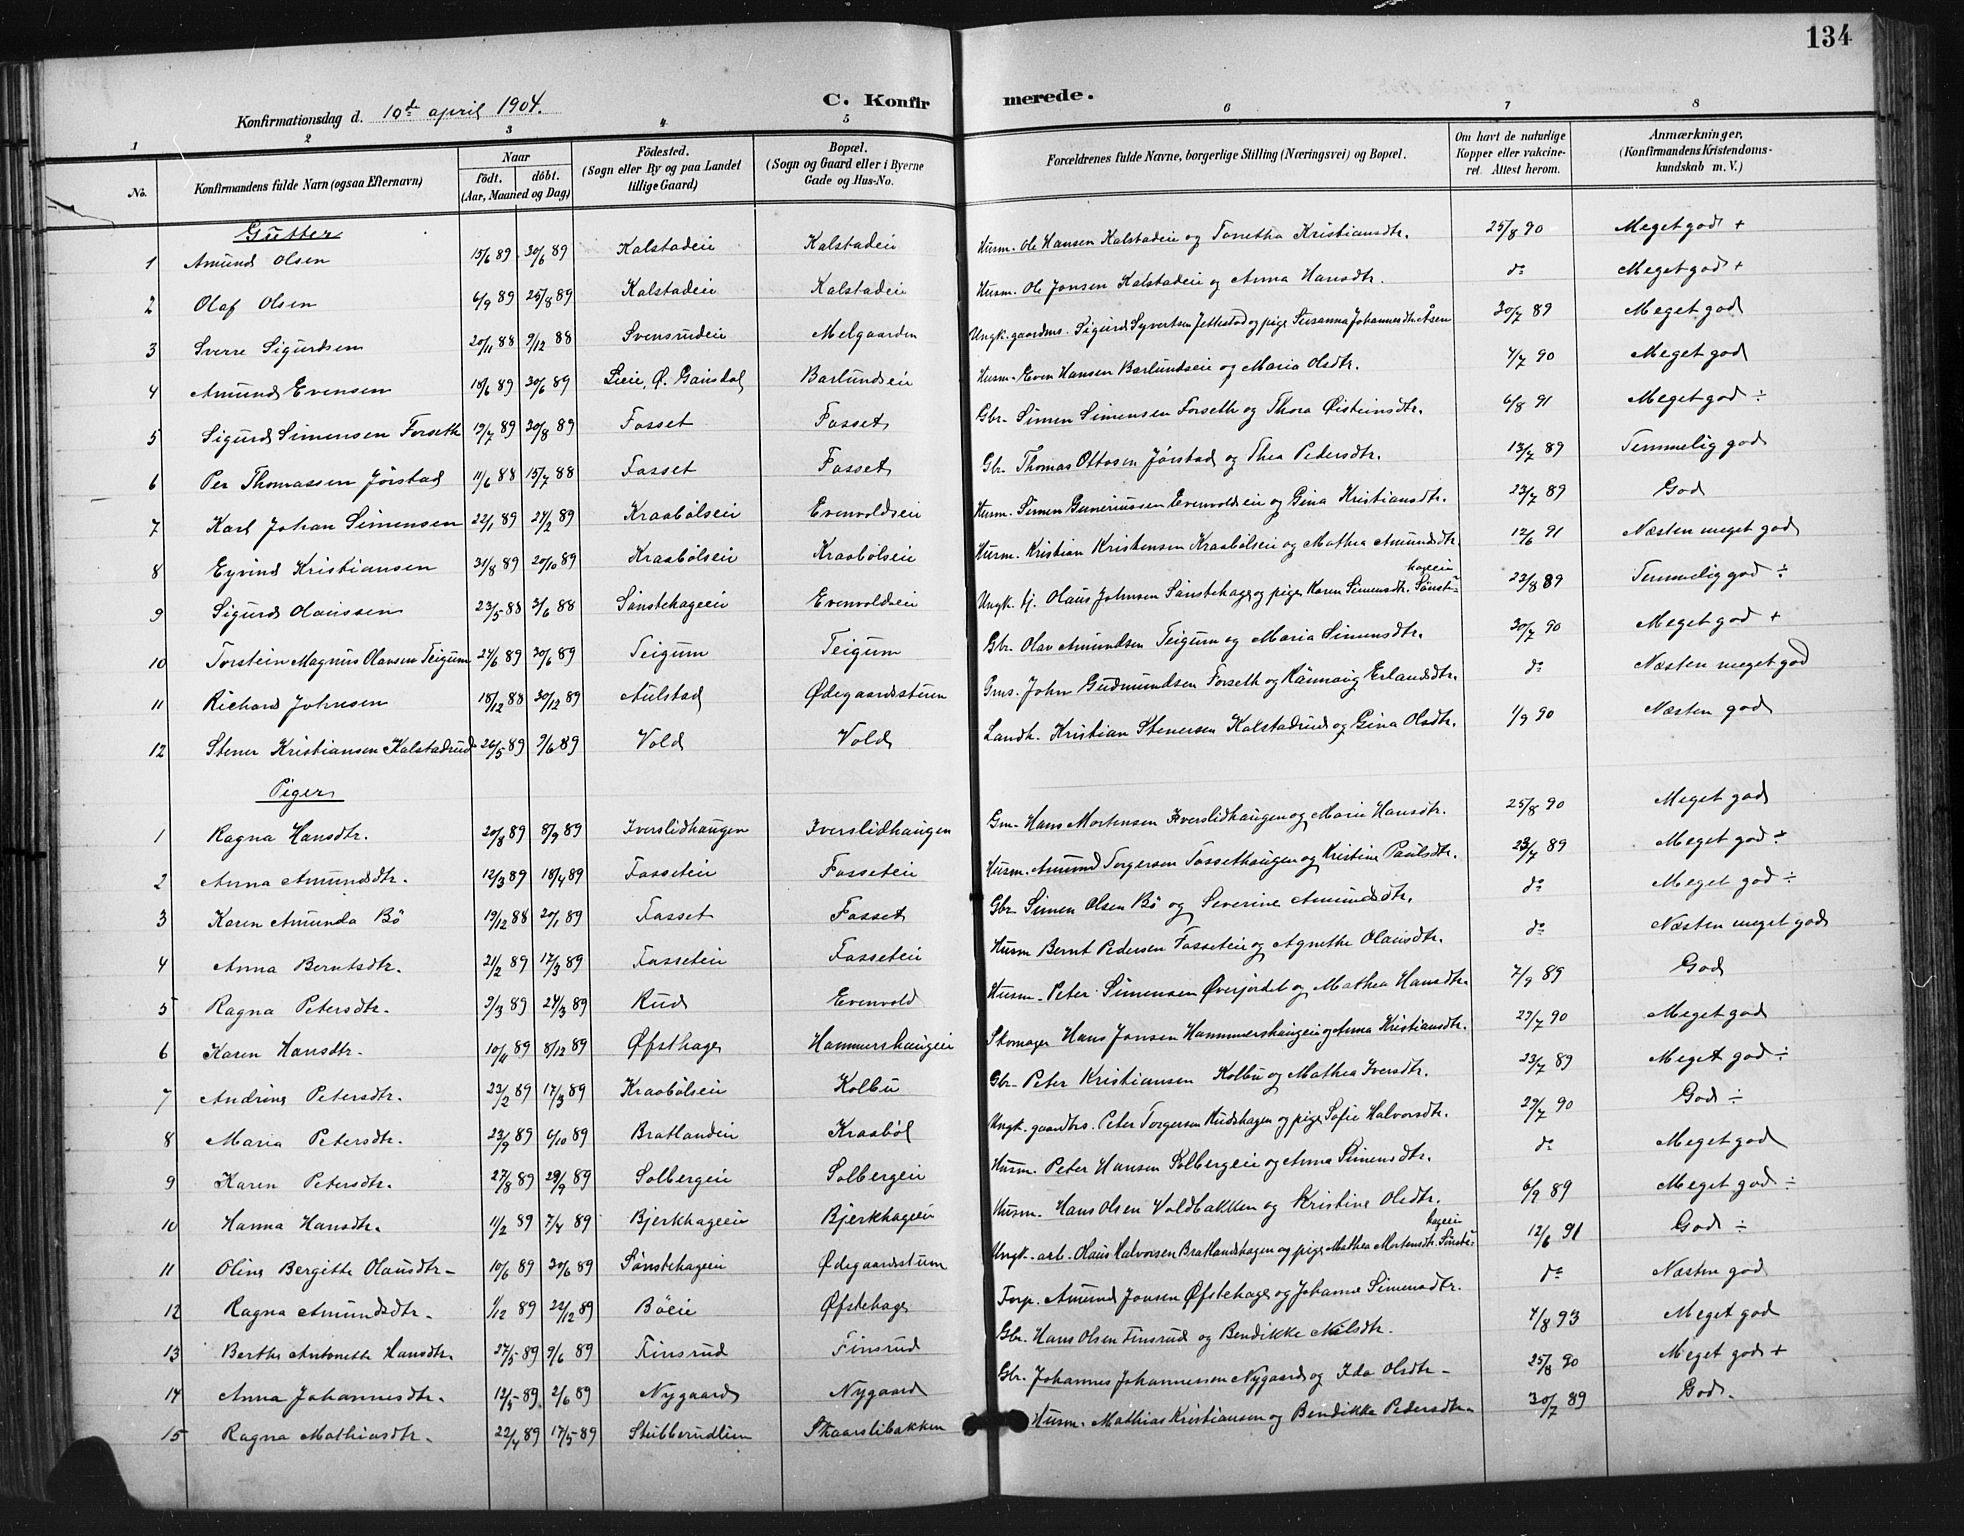 134
Konfirmationsdag d. 10de april 1904.
C. Konfirmerede.
1 2 3 4 5 6 7 8
No.
Konfirmandens fulde Navn (ogsaa Efternavn)
Naar
födt. döbt.
(Aar, Maaned og Dag)
Födested.
(Sogn eller By og paa Landet
tillige Gaard)
Bopæl.
(Sogn og Gaard eller i Byerne
Gade og Hus-No.
Forældrenes fulde Navne, borgerlige Stilling (Næringsvei) og Bopæl.
Om havt de naturlige
Kopper eller vakcine-
ret. Attest herom.
Anmærkninger,
(Konfirmandens Kristendoms-
kundskab m. V.)
Gutter
1 Amund Olsen 15/6 89 30/6 89 Kalstadeie Kalstadeie Husm. Ole Hansen Kalstadeie og Tonetha Kristiansdtr. 25/8 90 Meget god +
2 Olaf Olsen 6/9 89 25/8 89 Kalstadeie Kalstadeie Husm. Ole Jonsen Kalstadeie og Anna Hansdtr. do Meget god +
3 Sverre Sigurdsen 20/11 88 9/12 88 Svensrudeie Melgaarden Ungk. gaardms. Sigurd Syvertsen Jettestad og pige Susanna Johannesdtr. Åsen 30/7 89 Meget god
4 Amund Evensen 18/6 89 30/6 89 Lieie, Ø. Gausdal Barlundseie Husm. Even Hansen Barlundseie og Maria Olsdtr. 4/7 90 Meget god
5 Sigurd Simensen Forseth 19/7 89 30/8 89 Fosset Fosset Gbr. Simen Simensen Forseth og Thora Øisteinsdtr. 6/8 91 Meget god ÷
6 Per Thomassen Jørstad 11/6 88 15/7 88 Fosset Fosset Gbr. Thomas Ottosen Jørstad og Thea Pedersdtr. 13/7 89 Temmelig god
7 Karl Johan Simensen 22/1 89 24/2 89 Kraabølseie Evenvoldseie Husm. Simen Gunerinssen Evenvoldseie og Gina Kristiansdtr. 23/7 89 God
8 Eyvind Kristiansen 31/8 89 20/10 89 Kraabølseie Kraabølseie Husm. Kristian Kristensen Kraabølseie og Mathea Amundsdtr. 12/6 91 Næsten meget god
9 Sigurd Olaussen 23/5 88 3/6 88 Sønstehageeie Evenvoldseie Ungk. tj. Olaus Johnsen Sønstehage og pige Karen Simensdtr. Sønste-
hageeie 23/8 89 Temmelig god ÷
10 Torstein Magnus Olavsen Teigum 24/6 89 30/6 89 Teigum Teigum Gbr. Olav Amundsen Teigum og Maria Simensdtr. 30/7 90 Meget god +
11 Richard Johnsen 18/12 88 30/12 89 Aulstad Ødegaardsstuen Gms. John Gudmundsen Forseth og Rannaug Erlandsdtr. do Næsten meget god
12 Stener Kristiansen Kalstadrud 26/5 89 9/6 89 Vold Vold Landh. Kristian Stenersen Kalstadrud og Gina Olsdtr. 1/9 90 Næsten god
Piger
1 Ragna Hansdtr. 20/8 89 8/9 89 Iverslidhaugen Iverslidhaugen Gm. Hans Mortensen Iverslidhaugen og Marie Hansdtr. 25/8 90 Meget god
2 Anna Amundsdtr. 12/3 89 18/4 89 Fosseteie Fosseteie Husm. Amund Torgersen Fossethaugen og Kristine Paulsdtr. 23/7 89 Meget god +
3 Karen Amunda Bö 19/12 88 20/1 89 Fosset Fosset Gbr. Simen Olsen Bö og Severine Amundsdtr. do Meget god ÷
4 Anna Berntsdtr. 21/2 89 17/3 89 Fosseteie Fosseteie Husm Bernt Pedersen Fosseteie og Agnethe Olausdtr. do Næsten meget god
5 Ragna Petersdtr. 3/3 89 24/3 89 Rud Evenvold Husm. Peter Simensen Øverjordet og Mathea Hansdtr. 7/9 89 God
6 Karen Hansdtr. 10/11 89 8/12 89 Øfsthage Hammershaugeie Skomager Hans Jonsen Hammershaugeie og Anna Kristiansdtr. 29/7 90 Meget god
7 Andrine Petersdtr. 23/2 89 17/3 89 Kraabølseie Kolbu Gbr. Peter Kristiansen Kolbu og Mathea Iversdtr. 23/7 89 Meget god ÷
8 Maria Petersdtr. 23/9 89 6/10 89 Bratlandeie Kraabøl Ungk. gaardbrs. Peter Torgersen Rudshagen og pige Sofie Halvorsdtr. 29/7 90 God ÷
9 Karen Petersdtr. 27/8 89 29/9 89 Solbergeie Solbergeie Husm. Peter Hansen Solbergeie og Anna Simensdtr. do Meget god
10 Hanna Hansdtr. 11/2 89 7/4 89 Bjerkhageeie Bjerkhageeie Husm. Hans Olsen Voldbakken og Kristine Olsdtr. 6/9 89 Meget god ÷
11 Oline Bergitte Olausdtr. 10/6 89 30/6 89 Sønstehageeie Ødegaardsstuen Ungk. arb. Olaus Halvorsen Bratlandshagen og pige Mathea Mortensdtr. Sønste-
hageeie 12/6 91 God ÷
12 Ragna Amundsdtr. 1/12 89 22/12 89 Böeie Øfstehage Torp. Amund Jonsen Øfstehage og Johanne Simensdtr. do Næsten god
13 Berthe Antonette Hansdtr. 27/5 89 9/6 89 Finsrud Finsrud Gbr. Hans Olsen Finsrud og Bendikke Nilsdtr. 4/8 93 Meget god
14 Anna Johannesdtr. 12/5 89 2/6 89 Nygaard Nygaard Gbr. Johannes Johannessen Nygaard og Ida Olsdtr. 25/8 90 Meget god +
15 Ragna Mathiasdtr. 22/4 89 17/5 89 Stubberudlien Skaarslibakken Husm. Mathias Kristiansen og Bendikke Pedersdtr. 30/7 89 God.